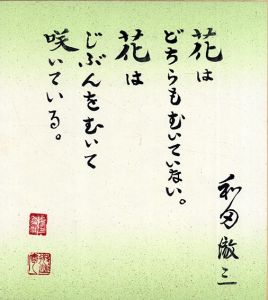 花は
どちらも むいていない。
花は
じぶんをむいて
咲いている。
和田徹三